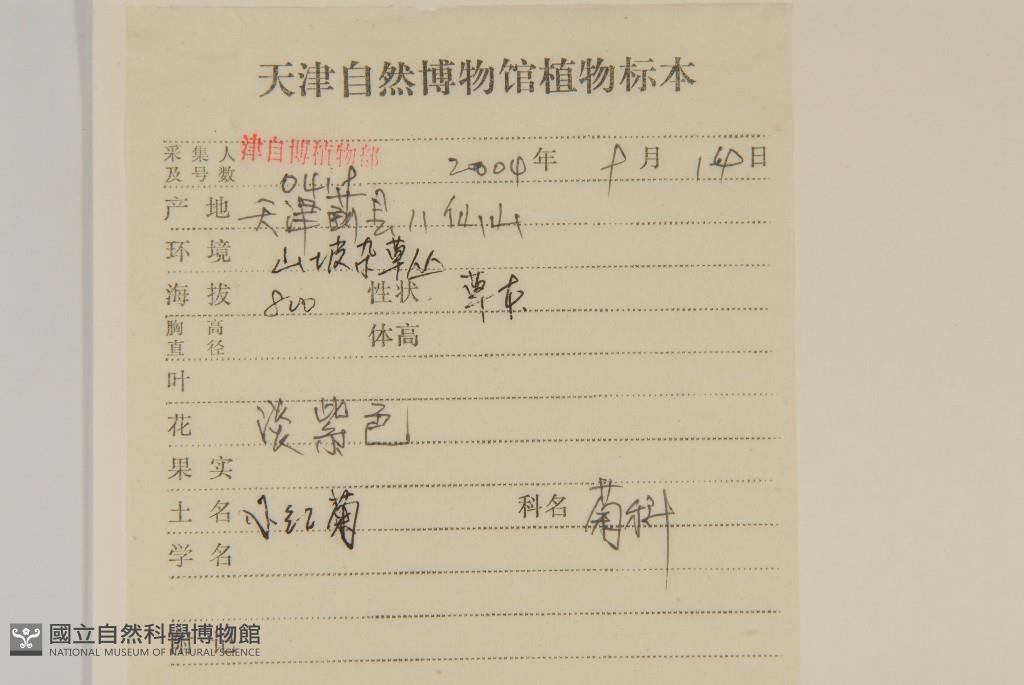 天津自然博物馆植物标本
采集人及号数 津自博植物部 2004年 十月 14日
产地 天津蓟县八仙山
环境 山坡杂草丛
海拔 800 性状 草本
胸高直径 体高
叶
花 淡紫色
果实
土名 小红菊 科名 菊科
学名
國立自然科學博物館
NATIONAL MUSEUM OF NATURAL SCIENCE